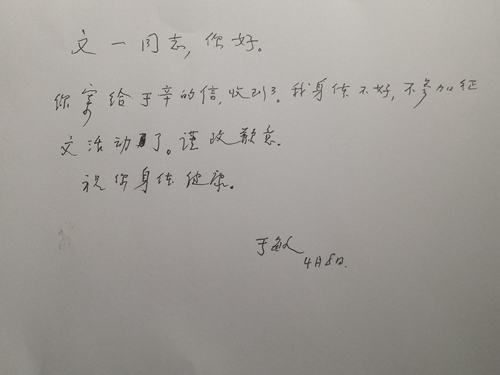 文一同志,你好。
你寄给于辛的信,收到了。我身体不好,不参加征
文活动了。谨致歉意.
祝你身体健康。
于敏
4月8日.